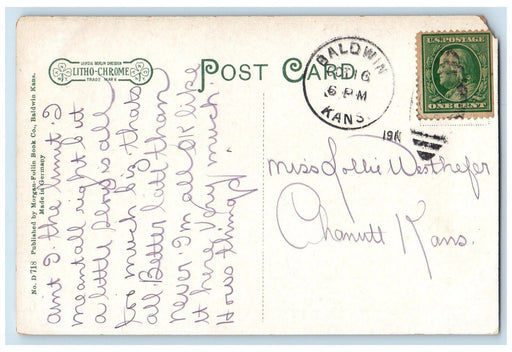 LEIPZIG BERLIN DRESDEN
LITHO-CHROME
TRADE MARK
POST CARD
BALDWIN
6 PM
KANS.
191
U.S. POSTAGE
ONE CENT
Miss Lollie Westhefer
Chanutt Kans.
No. D 718 Published by Morgan-Follin Book Co., Baldwin Kans.
Made in Germany
aint I the limit I
meant all right but
a little slow is all
too much biz thats
all. Better late than
never. I'm all OK like
it here very much.
Hows things.